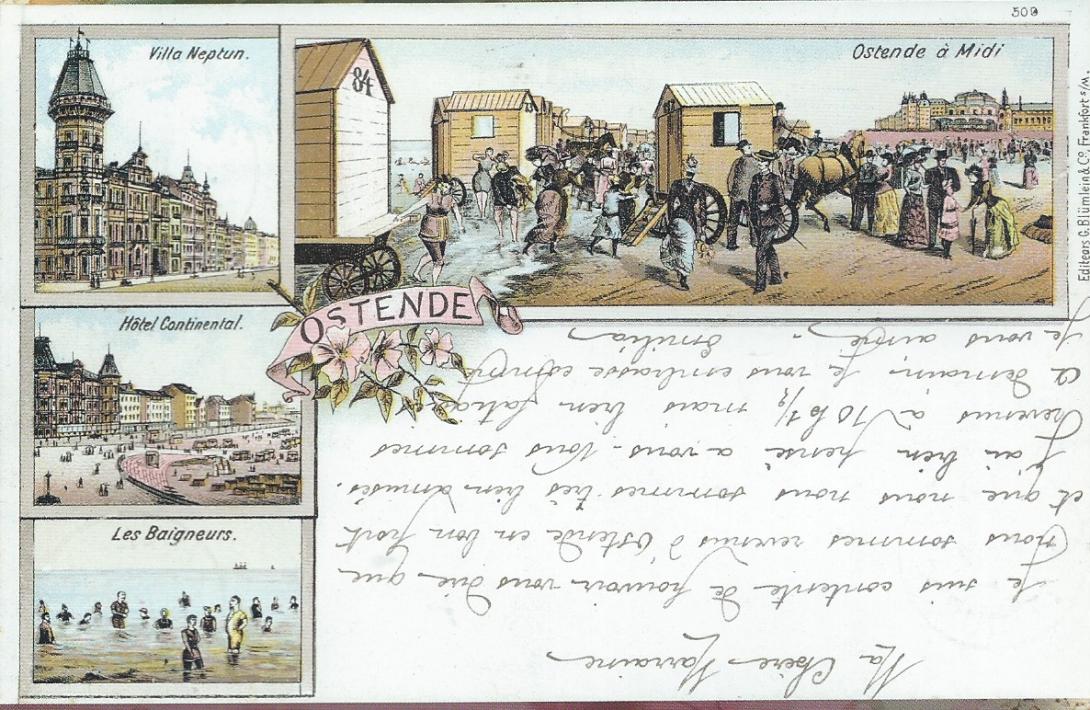 509
Villa Neptun.
Ostende à Midi
84
OSTENDE
Hôtel Continental.
Les Baigneurs.
Editeur: G. Blümlein & Co. Frankfort s/M.
Ma Chère Marraine
Je suis contente de pouvoir vous dire que
nous sommes revenus d'Ostende en bon port
et que nous nous sommes très bien amusés.
J'ai bien pensé a vous. Nous sommes
revenus à 10 h ½ mais bien fatigués
a demain. Je vous embrasse comme
je vous aime.
Emilia